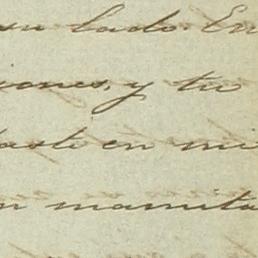 su lado. En
ones, y tu
aste en mi
n mamita